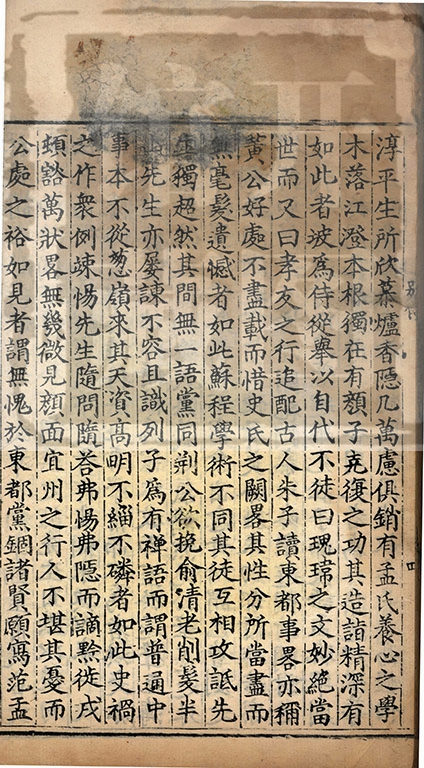 淳平生所欣慕爐香隱几萬慮俱銷有孟氏養心之學
木落江澄本根獨在有顏子克復之功其造詣精深有
如此者波爲侍從舉以自代不徒曰瑰瑋之文妙絕當
世而又曰孝友之行追配古人朱子讀東都事畧亦稱
黃公好處不盡載而惜史氏之闕畧其性分所當盡而
無毫髮遺憾者如此蘇程學術不同其徒互相攻詆先
生獨超然其間無一語黨同荆公欲挽俞清老削髮半
山先生亦屢諫不容且識列子爲有禅語而謂普通中
事本不從葱嶺來其天資高明不緇不磷者如此史禍
之作衆例竦惕先生隨問隨荅弗惕弗隱而謫黔徙戎
頓豁萬狀畧無幾微見顏面宜州之行人不堪其憂而
公處之裕如見者謂無愧於東都黨錮諸賢願寫范孟
四